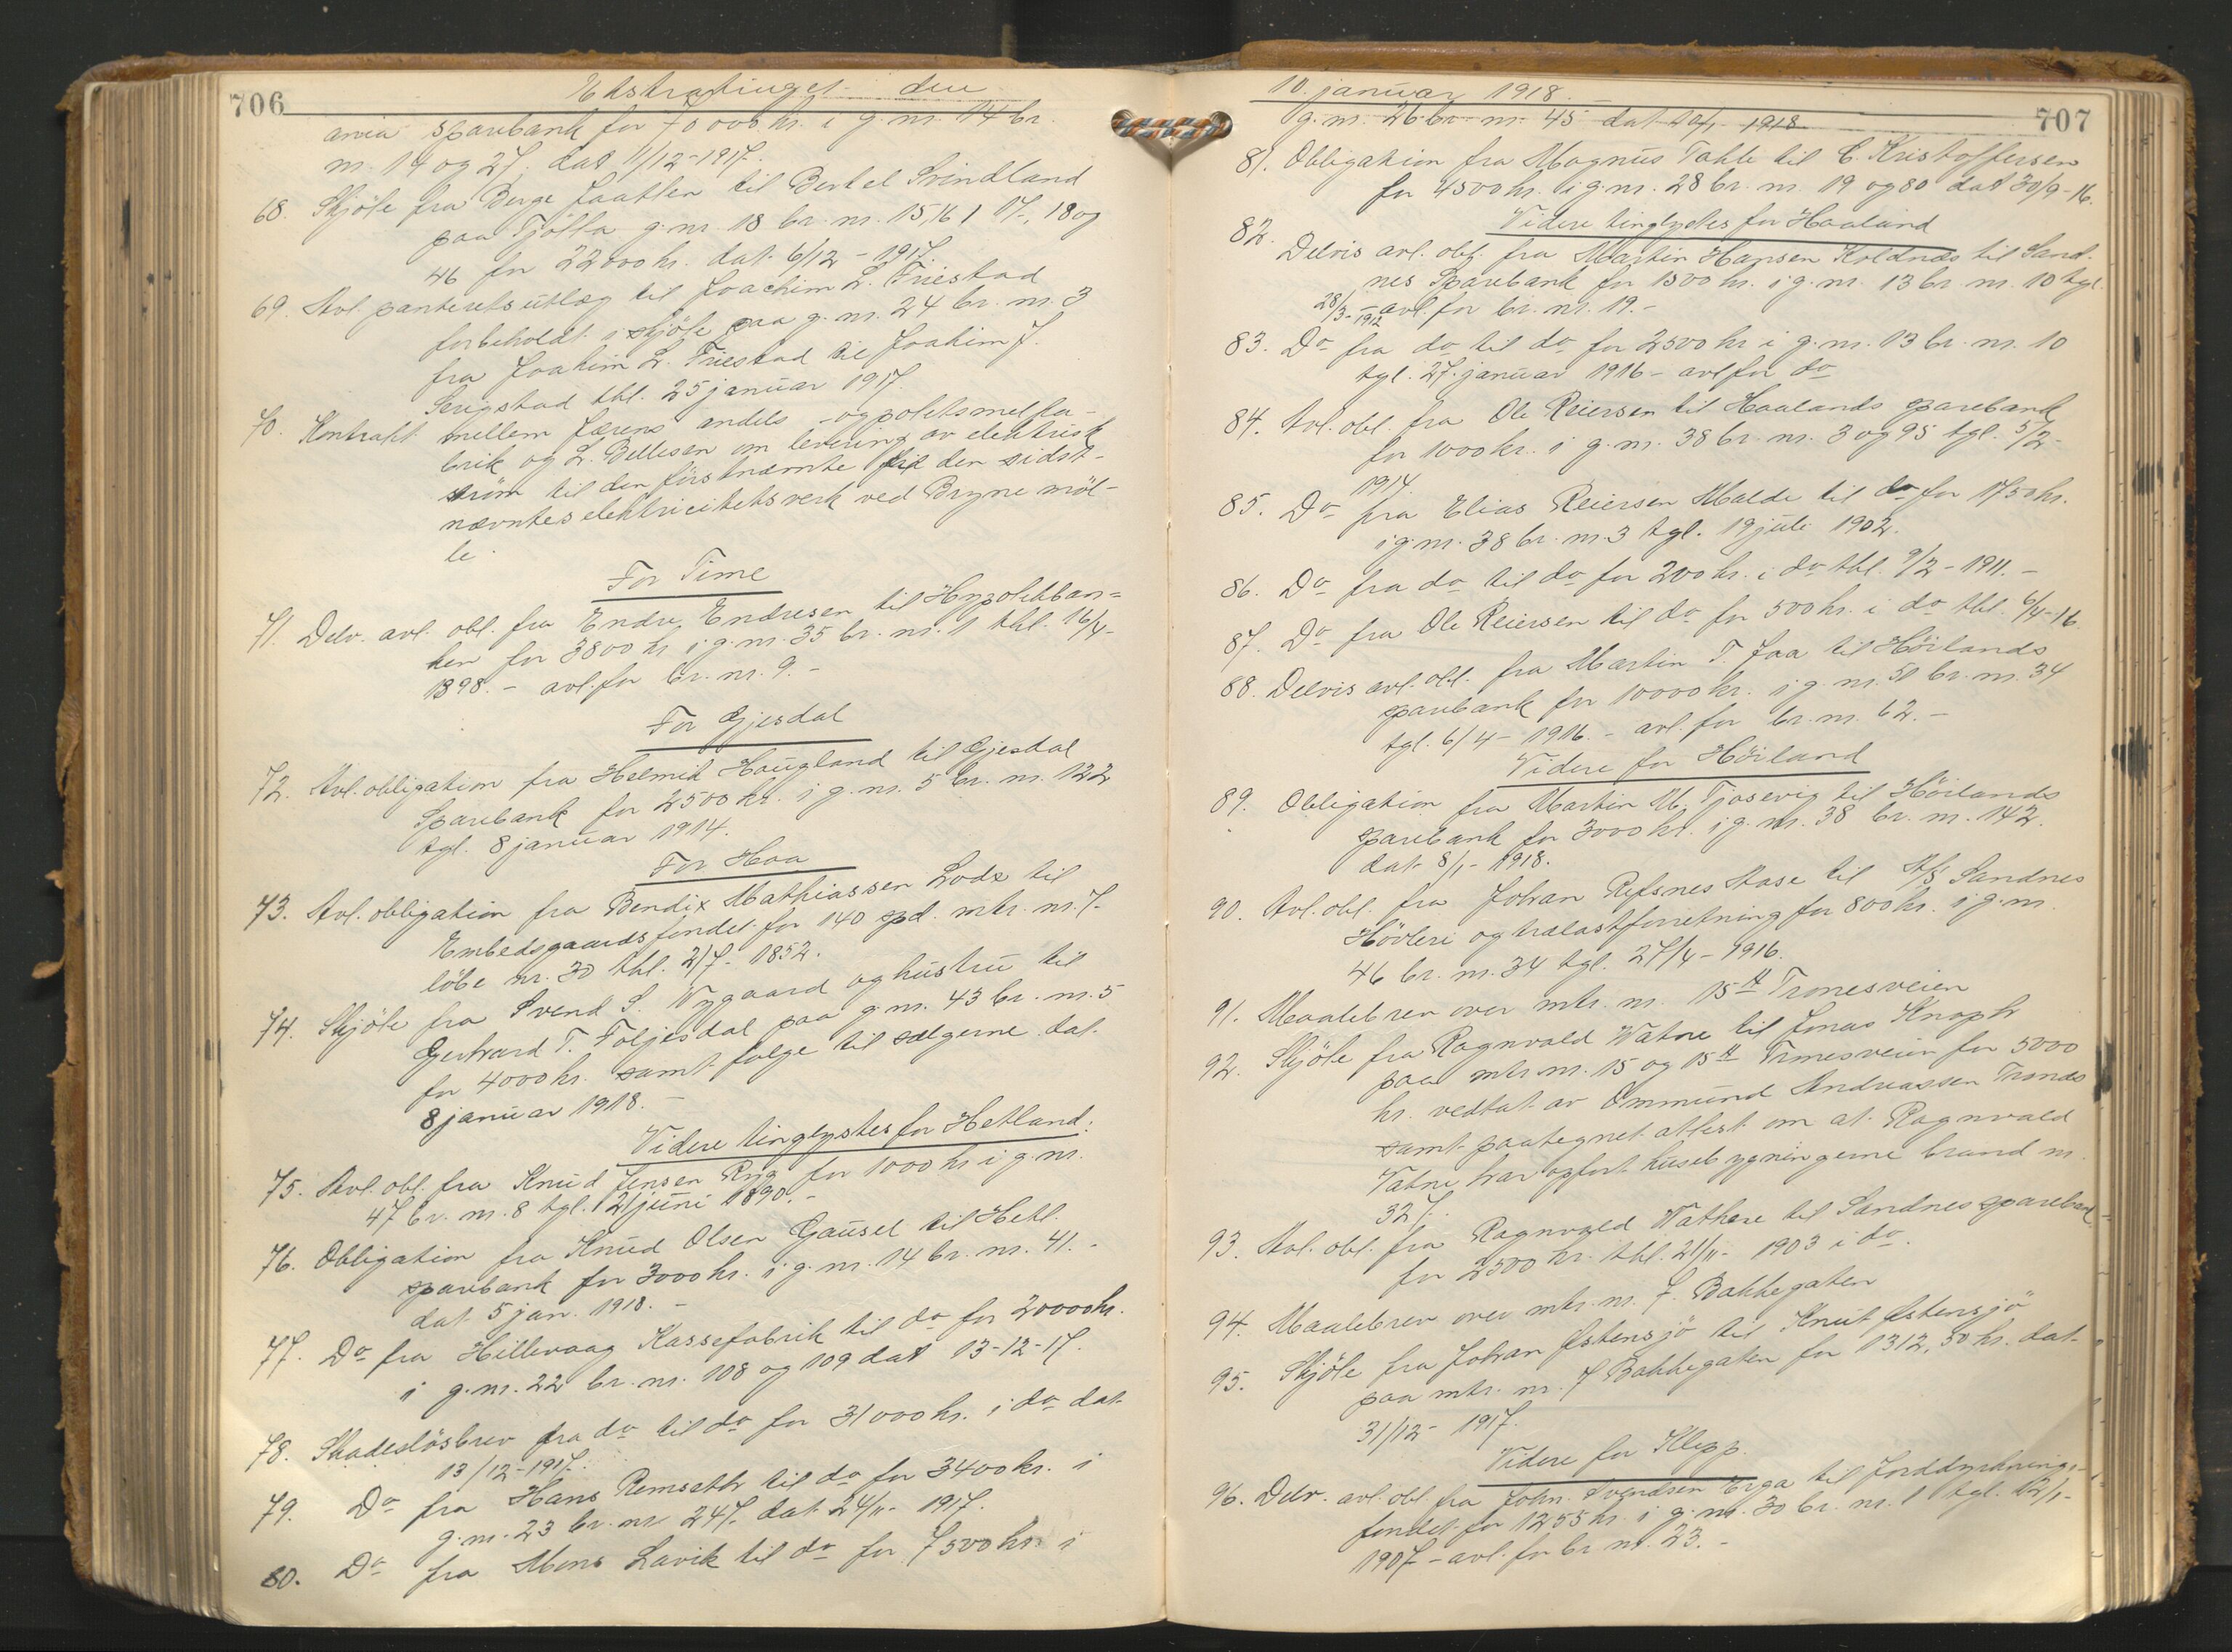 706
Ekstratinget den
sparebank for 70000 kr. i g. nr. 14 br.
nr. 14 og 27. dat 11/12-1917.
68. Skjöte fra Berge Jaatten til Bertel Svindland
paa Tjötta g. nr. 18 br. nr. 15, 16, 17, 18 og
46 for 22000 kr. dat. 6/12 - 1917.
69. Avl. panteretsutlæg til Joachim L. Friestad
forbeholdt i skjöte paa g. nr. 24 br. nr. 3
fra Joakim L. Friestad til Joakim J.
Serigstad thl. 25 januar 1917.
70. Kontrakt mellem Jærens andels - og potetsmelfa-
brik og L. Bellesen om levering av elektrisk
ström til den förstnævnte fra den sidst-
nævntes elektricitetsverk ved Bryne möl-
le.
For Time
71. Delv. avl. obl. fra Endre Endresen til Hypotekban=
ken for 3800 kr i g. nr. 35 br. nr. 1 thl. 16/4-
1898. - avl. for br. nr. 9. -
For Gjesdal
72. Avl. obligation fra Helmik Haugland til Gjesdal
Sparebank for 2500 kr. i g. nr. 5 br. nr. 122
tgl. 8 januar 1914.
For Haa
73. Avl. obligation fra Bendix Mathiassen Lods til
Embedsgaardsfondet for 140 spd. mtr. nr. 7.
löbe nr. 30 thl. 2/7- 1852.
74. Skjöte fra Svend S. Nygaard og hustru til
Gerhard T. Foljesdal paa g. nr. 43 br. nr. 5
for 4000 kr. samt folge til sælgerne dat.
8 januar 1918. -
Videre tinglystes for Hetland:
75. Avl. obl. fra Knud Jensen Ryg for 1000 kr i g. nr.
47 br. nr. 8 tgl. 21 juni 1890. -
76. Obligation fra Knud Olsen Gausel til Hetl.
sparebank for 3000 kr. i g. nr. 14 br. nr. 41. -
dat. 5 jan. 1918. -
77. Do fra Hillevaag Kassefabrik til do for 20000 kr.
i g. nr. 22 br. nr. 108 og 109 dat 13-12-17.
78. Skadeslösbrev fra do til do for 31000 kr. i do dat
13/12-1917.
79. Do fra Hans Remseth til do for 3400 kr. i
g. nr. 23 br. nr. 247. dat 24/11- 1917.
80. Do fra Mons Lavik til do for 7500 kr. i
10. januar 1918.
707
g. nr. 26 br. nr. 45 dat 10/1 1918
81. Obligation fra Magnus Takle til C. Kristoffersen
for 4500 kr. i g. nr. 28 br. nr. 19 og 80 dat 30/9-16.
Videre tinglystes for Haaland
82. Delvis avl. obl. fra Martin Hansen Koldnæs til Sand-
nes Sparebank for 1500 kr. i g. nr. 13 br. nr. 10 tgl.
28/3-1912 - avl. for br. nr. 19. -
83. Do fra do til do for 2500 kr i g. nr. 13 br. nr. 10
tgl. 27. januar 1916 - avl for do
84. Avl. obl. fra Ole Reiersen til Haalands sparebank
for 1000 kr. i g. nr. 38 br. nr. 3 og 95 tgl. 5/2-
1914.
85. Do fra Elias Reiersen Malde til do for 1750 kr.
i g. nr. 38 br. nr. 3 tgl. 19 juli 1902.
86. Do fra do til do for 200 kr. i do thl. 9/2 - 1911. -
87. Do fra Ole Reiersen til do for 500 kr. i do thl. 6/4-16.
88. Delvis avl. obl. fra Martin T. Jaa til Höilands
sparebank for 10000 kr. i g. nr. 51 br. nr. 34
tgl. 6/4 - 1916. - avl. for br. nr. 62. -
Videre for Höiland
89. Obligation fra Martin M. Tjosevig til Höilands
sparebank for 3000 kr. i g. nr. 38 br. nr. 142.
dat 8/1- 1918.
90. Avl. obl. fra Johan Refsnes Aase til A/S Sandnes
Hövleri og trælastforretning for 800 kr. i g. nr.
46 br. nr. 34 tgl. 27/4 - 1916.
91. Maalebrev over mtr. nr. 15 A Tronesveien
92. Skjöte fra Ragnvald Watne til Jonas Knoph
paa mtr nr. 15 og 15 A Tronesveien for 5000
kr. vedtat av Ommund Andreassen Tronds
samt paategnet attest om at Ragnvald
Vatne har opfort husebygningerne brand nr.
327.
93. Avl. obl. fra Ragnvald Wathne til Sandnes spareb
for 2500 kr. thl. 21/11- 1903 i do.
94. Maalebrev over mtr. nr. 7. Bakkegaten
95. Skjöte fra Johan Østensjö til Knut Østensjö
paa mtr. nr. 7 Bakkegaten for 1312,50 kr. dat
31/12- 1917.
Videre for Klepp.
96. Delv. avl. obl. fra John. Svendsen Erga til Jorddyrknings-
fondet for 1255 kr. i g. nr. 30 br. nr. 1 tgl. 12/1-
1907 - avl. for br nr. 23. -